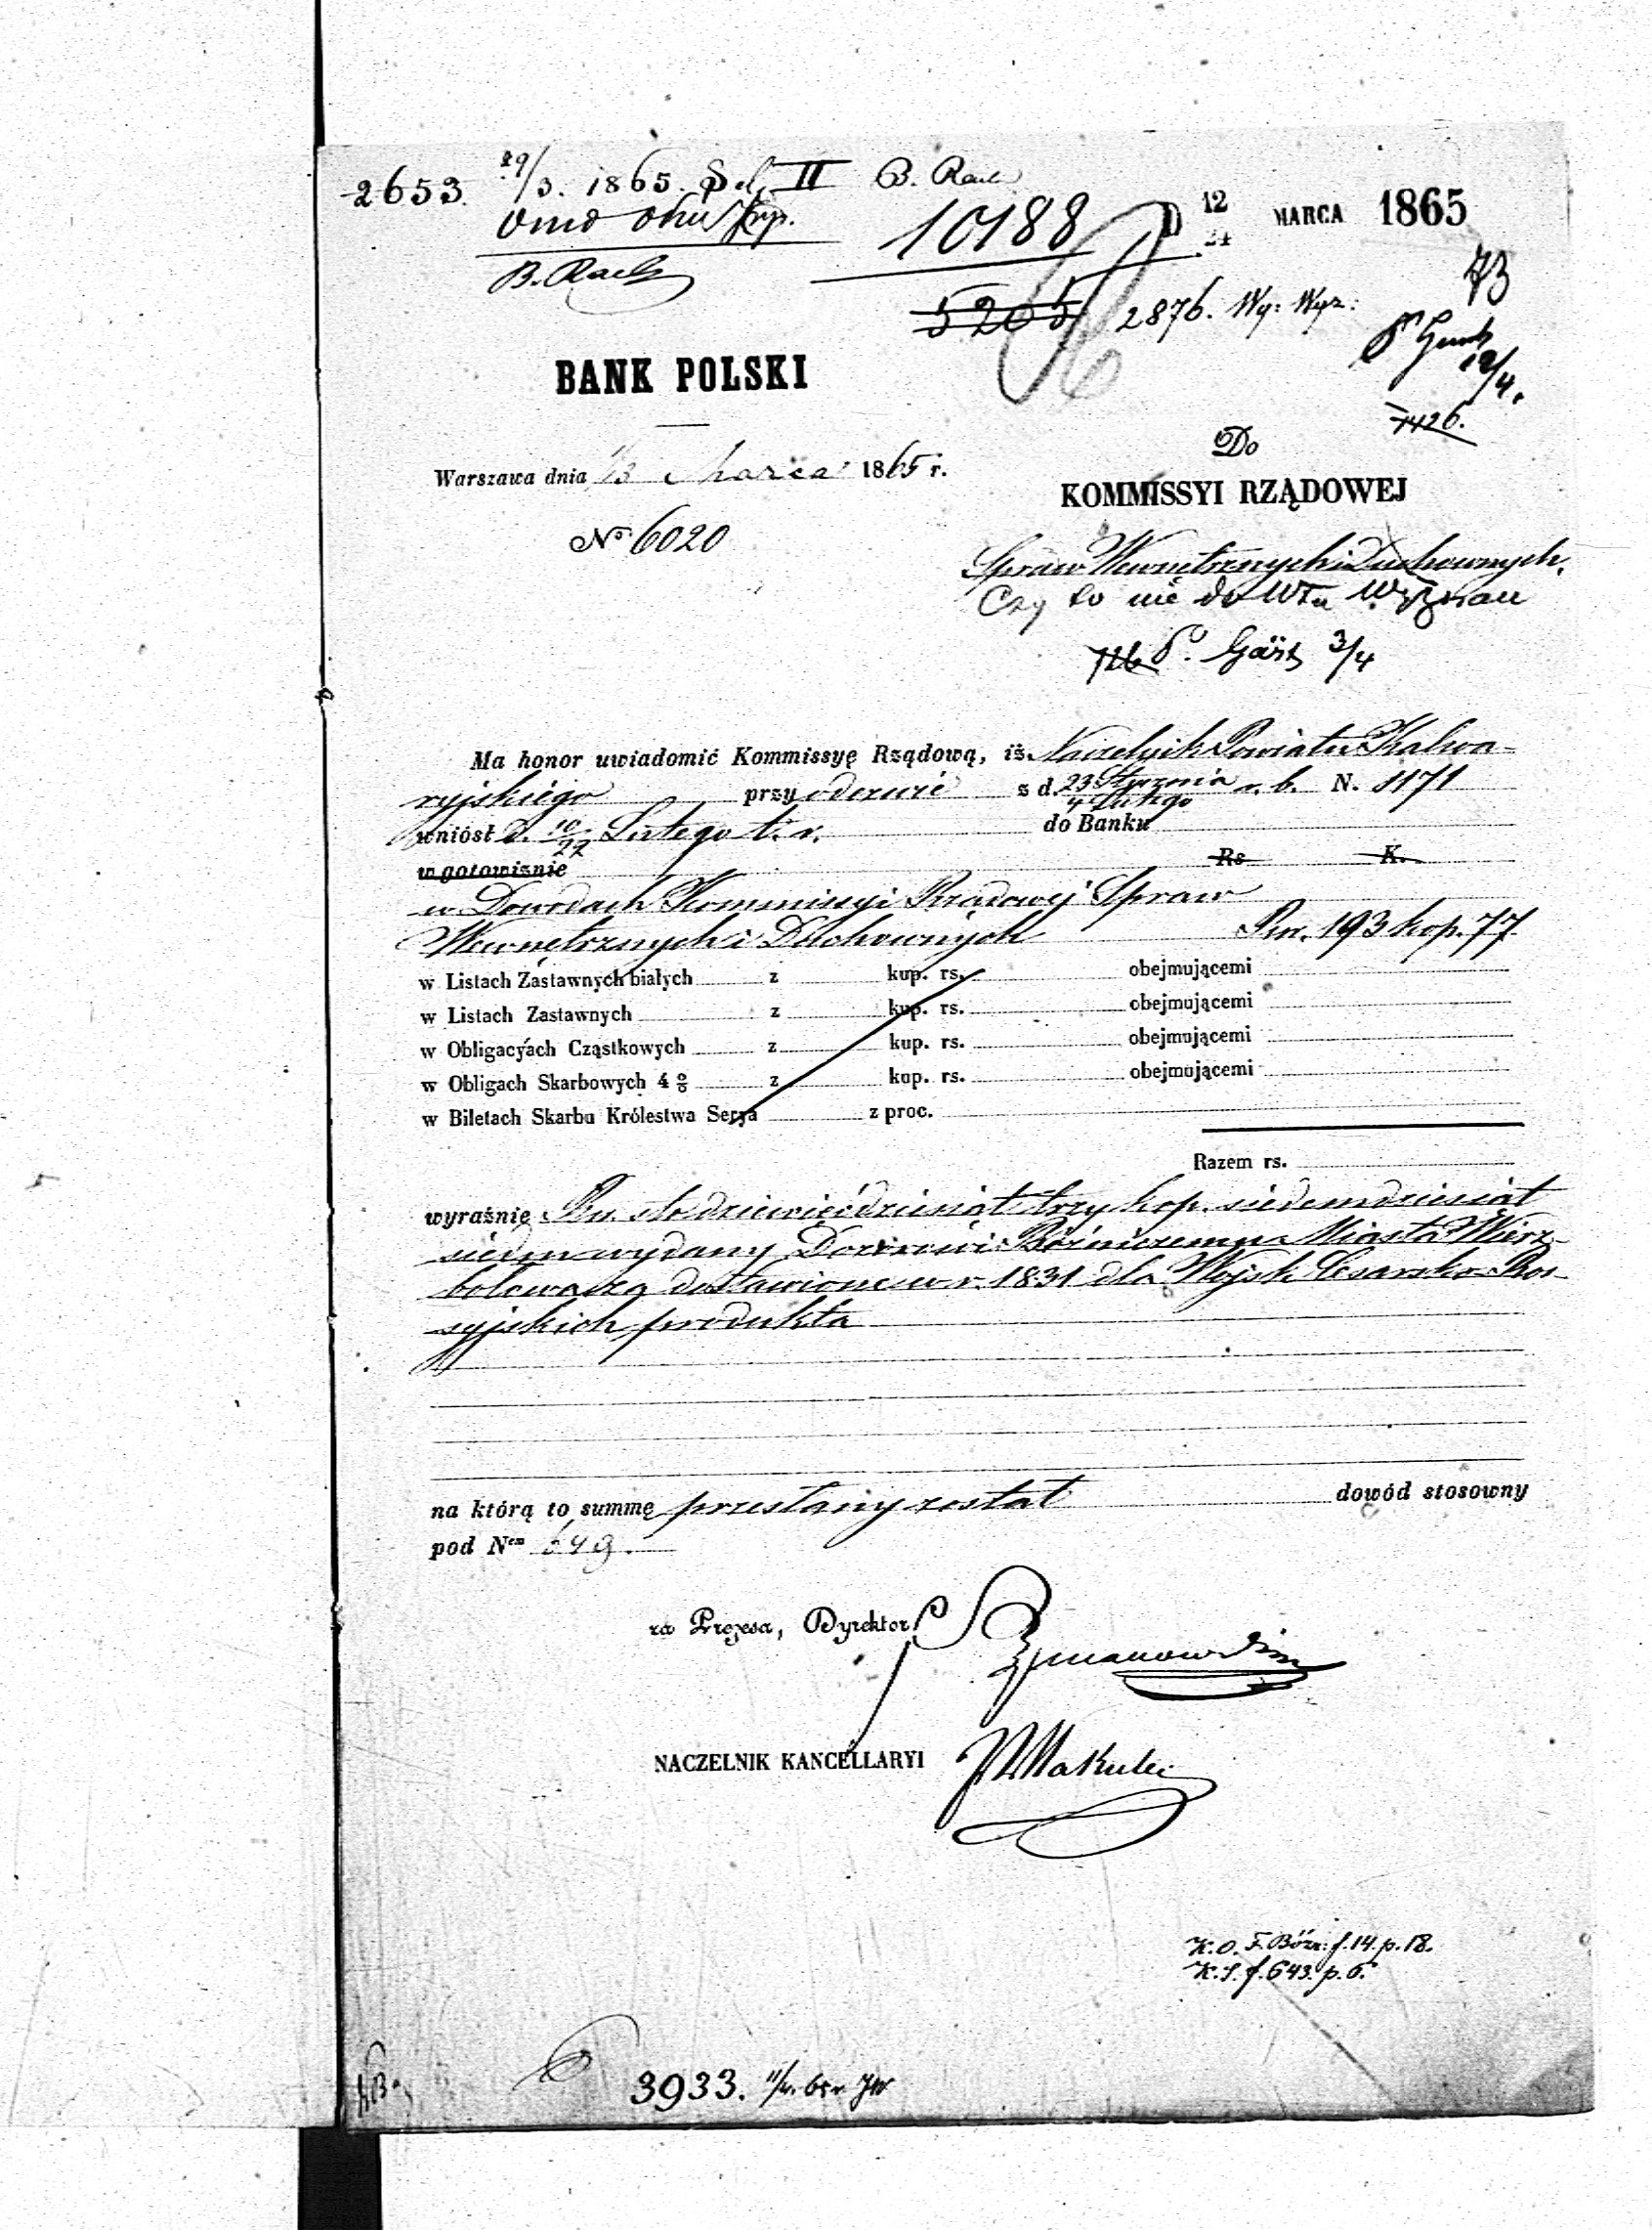 2653. 29/3. 1865. II B. Rach
10188 D 12/24 MARCA 1865
B. Rach
5205 2876. Wy: Wyz:
73
12/4.
7426.
BANK POLSKI
Do
Warszawa dnia /3 Marca 1865 r.
KOMMISSYI RZĄDOWEJ
No 6020
Spraw Wewnętrznych i Duchownych.
Czy to nie do Włu Wyznań
726 P. Gärt 3/4
Ma honor uwiadomić Kommissyę Rządową, iż Naczelnik Powiatu Kalwa-
ryjskiego przy odezwie z d. 23 Stycznia/4 Lutego r. b. N. 1171
wniósł d. 10/22 Lutego t. r. do Banku
w gotowiznie Rs K.
w Dowodach Kommissyi Rządowej Spraw
Wewnętrznych i Duchownych Rsr. 193 kop. 77
w Listach Zastawnych białych z kup. rs. obejmującemi
w Listach Zastawnych z kup. rs. obejmującemi
w Obligacyach Cząstkowych z kup. rs. obejmującemi
w Obligach Skarbowych 4 % z kup. rs. obejmującemi
w Biletach Skarbu Królestwa Serya z proc.
Razem rs.
wyraźnie Rsr. sto dziewięćdziesiąt trzy kop. siedemdziesiąt
siedm wydany Dozorowi Bóżniczemu Miasta Wierz-
bołowa za dostawione w r. 1831 dla Wojsk Cesarsko Ros-
syjskich produkta
na którą to summę przesłany został dowód stosowny
pod Nem 649.
za Prezesa, Dyrektor Szymanowski
NACZELNIK KANCELLARYI Makulec
K.O. F. Bóżn: f. 14. p. 18.
K.S. f. 643. p. 6.
3933.